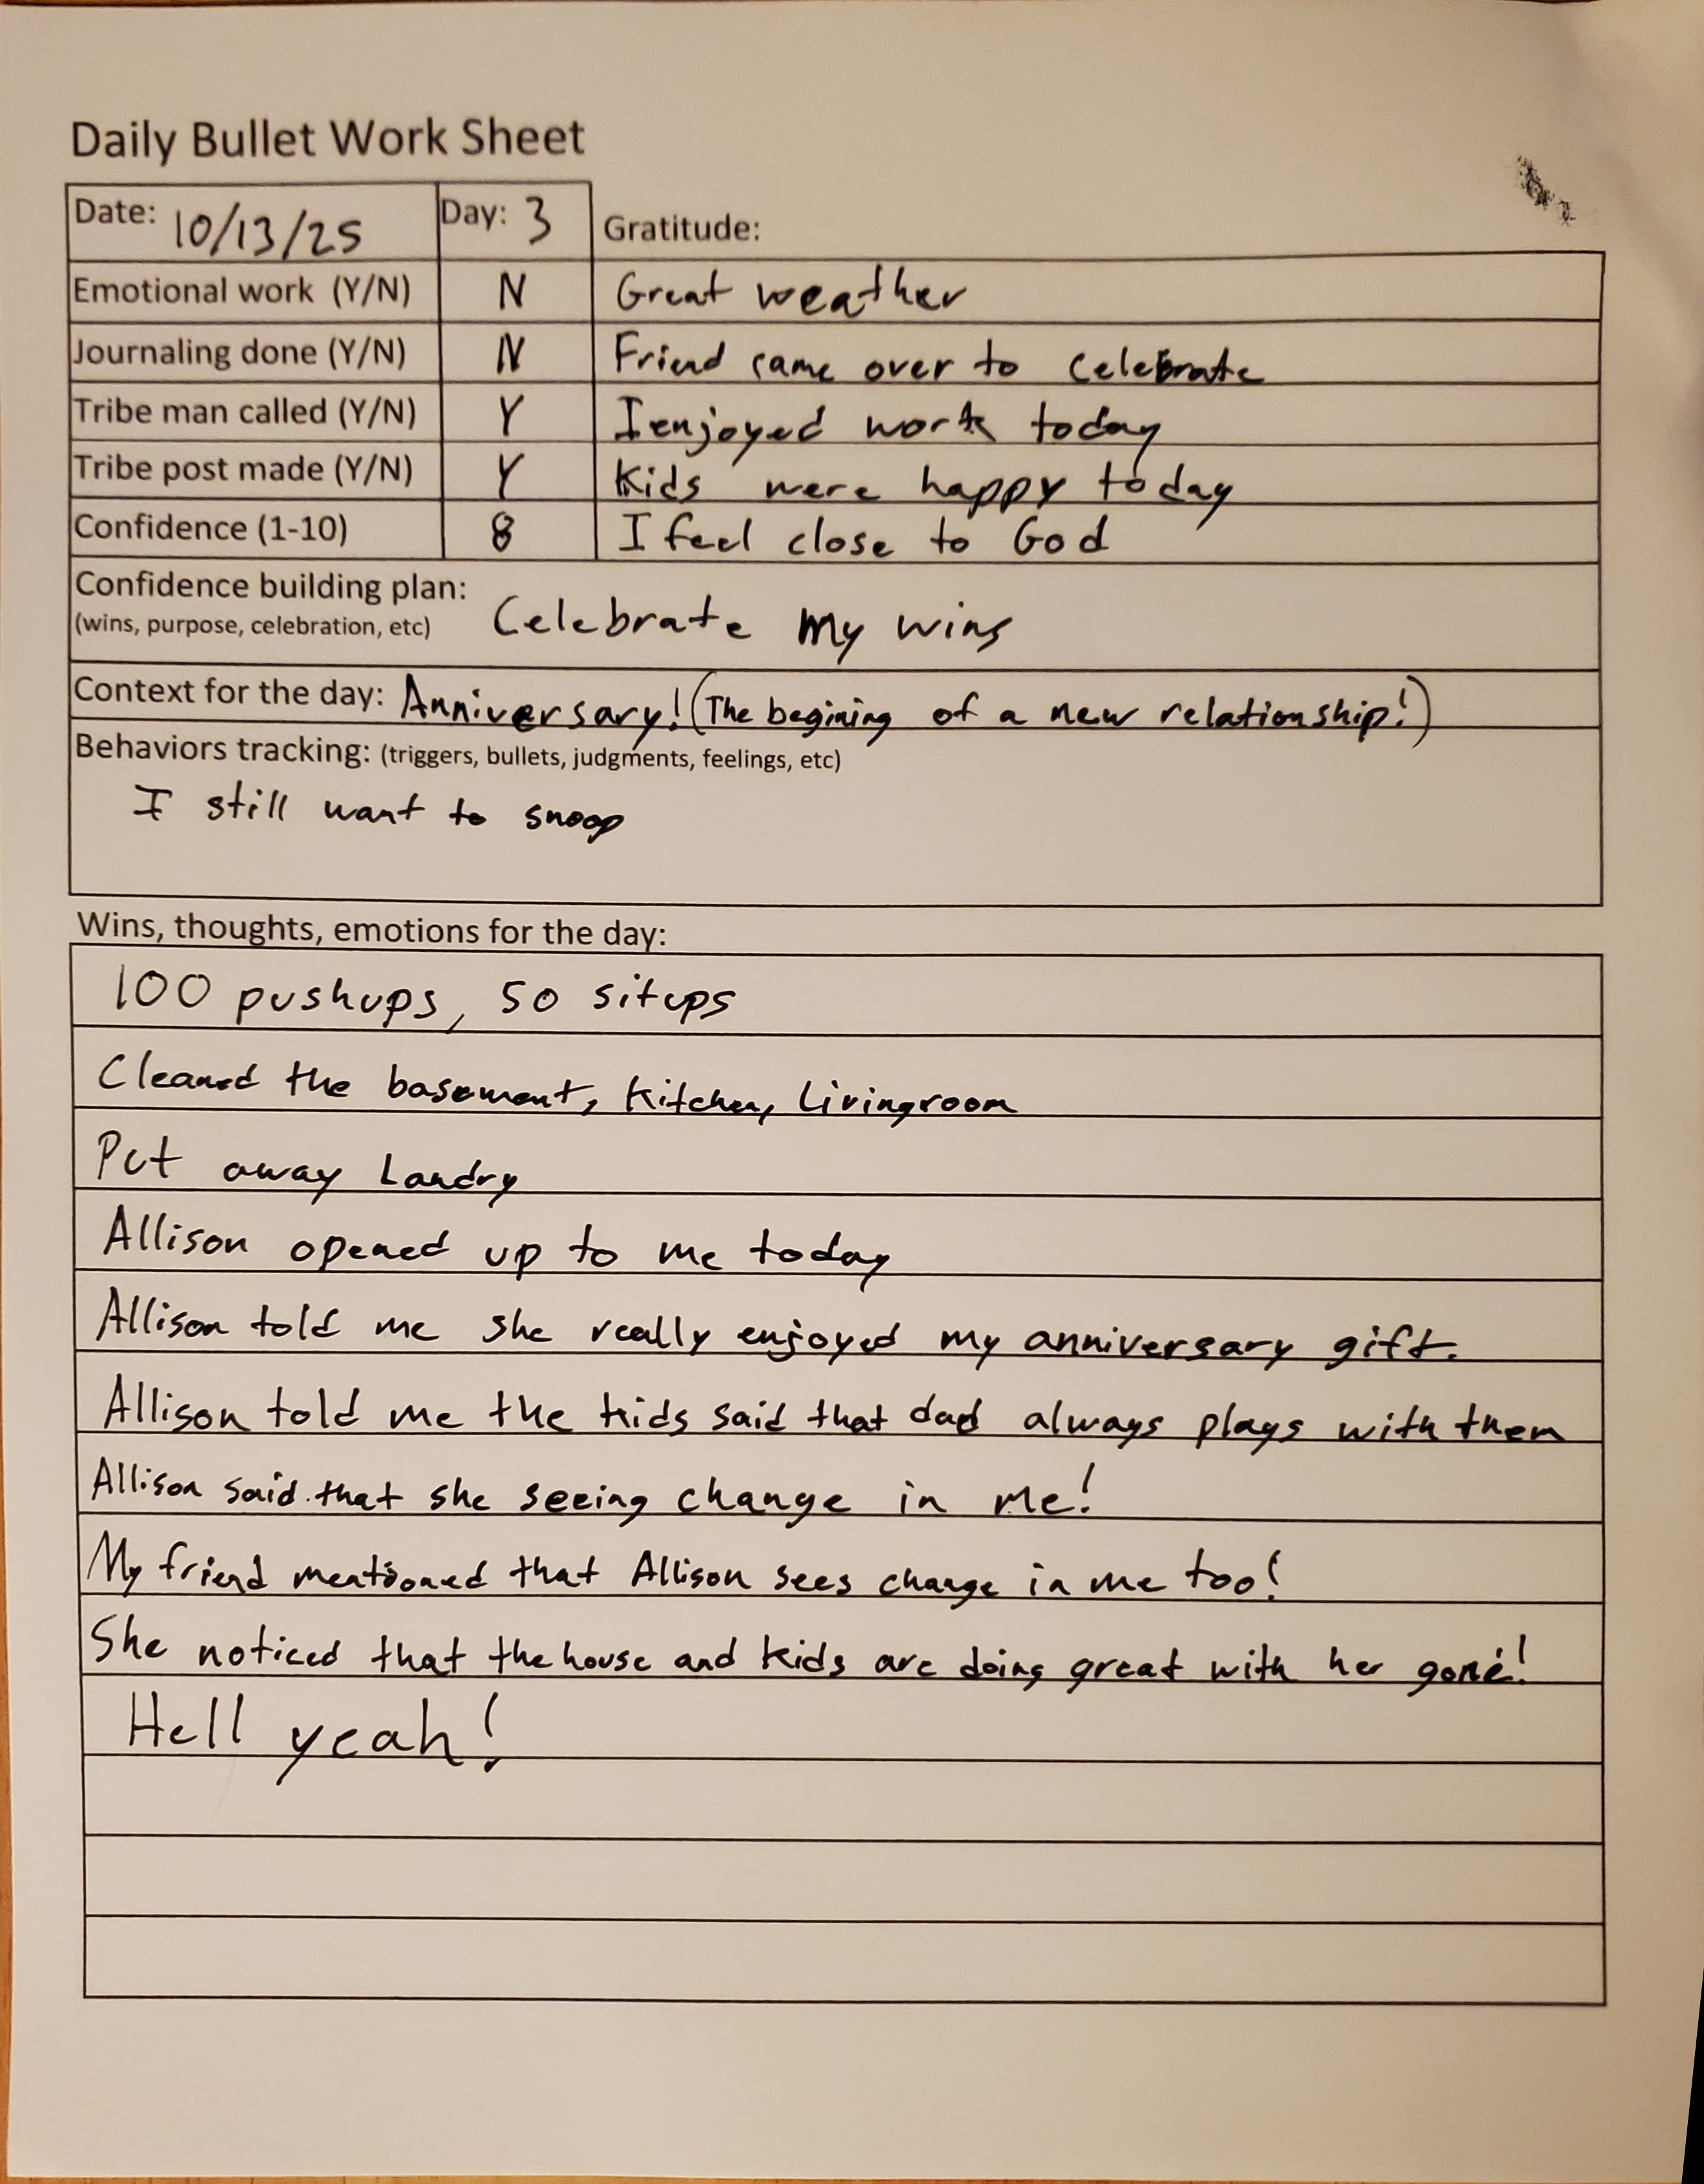 Daily Bullet Work Sheet
Date: 10/13/25 Day: 3 Gratitude:
Emotional work (Y/N) N Great weather
Journaling done (Y/N) N Friend came over to celebrate
Tribe man called (Y/N) Y I enjoyed work today
Tribe post made (Y/N) Y Kids were happy today
Confidence (1-10) 8 I feel close to God
Confidence building plan:
(wins, purpose, celebration, etc) Celebrate my wins
Context for the day: Anniversary! (The begining of a new relationship!)
Behaviors tracking: (triggers, bullets, judgments, feelings, etc)
I still want to snoop
Wins, thoughts, emotions for the day:
100 pushups, 50 situps
Cleaned the basement, Kitchen, Livingroom
Put away Landry
Allison opened up to me today
Allison told me she really enjoyed my anniversary gift.
Allison told me the kids said that dad always plays with them
Allison said that she seeing change in me!
My friend mentioned that Allison sees change in me too!
She noticed that the house and kids are doing great with her gone!
Hell yeah!